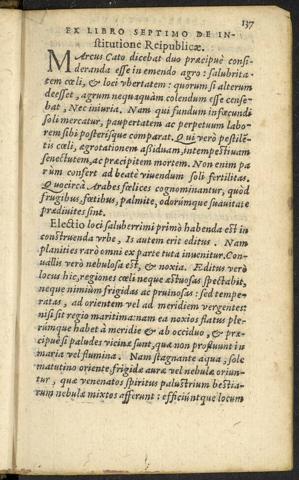 137
EX LIBRO SEPTIMO DE IN-
stitutione Reipublicæ.
MArcus Cato dicebat duo præcipuè consi-
deranda esse in emendo agro: salubrita-
tem cœli, & loci vbertatem: quorum si alterum
deesset, agrum nequaquàm colendum esse cense-
bat, Nec iniuria. Nam qui fundum infœcundi
soli mercatur, paupertatem ac perpetuum labo-
rem sibi posterísque comparat. Qui verò pestilē-
tis cœli, ægrotationem aßiduam, intempestiuam
senectutem, ac præcipitem mortem. Non enim pa
rum confert ad beatè viuendum soli fertilitas.
Quocircà Arabes fœlices cognominantur, quòd
frugibus, fœtibus, palmite, odorúmque suauitate
prædiuites sint.
Electio loci saluberrimi primò habenda est in
construenda vrbe, Is autem erit editus. Nam
planities rarò omni ex parte tuta inuenitur. Con-
uallis verò nebulosa est, & noxia. Editus verò
locus hic, regiones cœli neque æstuosas spectabit,
neque nimiùm frigidas ac pruinosas: sed tempe-
ratas, ad orientem vel ad meridiem vergentes:
nisi sit regio maritima: nam ea noxios flatus ple-
rúmque habet à meridie & ab occiduo, & præ-
cipuè si paludes vicinæ sunt, quæ non profluunt in
maria vel flumina. Nam stagnante aqua, sole
matutino oriente, frigidæ auræ vel nebulæ oriun-
tur, quæ venenatos spiritus palustrium bestia-
rum nebulæ mixtos afferunt: efficiúntque locum